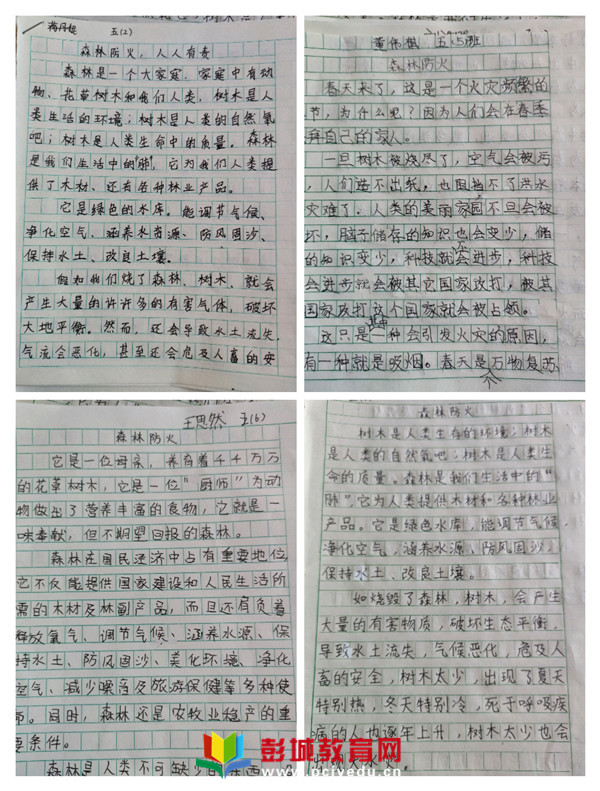 五(2)
森林防火，人人有责
森林是一个大家庭，家庭中有动
物、花草树木和我们人类，树木是人
类生活的环境；树木是人类的自然氧
吧；树木是人类生命中的质量。森林
是我们生活中的肺，它为我们人类提
供了木材、还有各种林业产品。
它是绿色的水库。能调节气候、
净化空气、涵养水资源、防风固沙、
保持水土、改良土壤。
假如我们烧了森林、树木、就会
产生大量的许许多的有害气体，破坏
大地平衡。然而，还会导致水土流失，
气流会恶化，甚至还会危及人畜的安
董伟 五(5)班
森林防火
春天来了，这是一个火灾频繁的
节，为什么思？因为人们会在春季
拜自己的家人。
一旦树木被烧尽了，空气会被污
，人们造不出纸，也阻挡不了洪水
灾难了，人类的美丽家园不旦会被
坏，脑子储存的知识也会变少，储
的知识变少，科技就不会进步，科技
会进步就会被其它国家攻打，被其
国家攻打这个国家就会被占领。
这只是其中一种会引发火灾的原因，
有一种就是吸烟。春天是万物复苏
王思然 五(6)
森林防火
它是一位母亲，养育着千千万万
的花草树木，它是一位“厨师”为动
物做出了营养丰富的食物，它就是一
味奉献，但不期望回报的森林。
森林在国民经济中占有重要地位
它不仅能提供国家建设和人民生活所
需的木材及林副产品，而且还肩负着
释放氧气、调节气候、涵养水源、保
持水土、防风固沙、美化环境、净化
空气、减少噪音及旅游保健等多种使
命。同时，森林还是农牧业稳产的重
要条件。
森林是人类不可缺少的东西
森林防火
树木是人类生存的环境；树木
是人类的自然氧吧；树木是人类生
命的质量。森林是我们生活中的“
肺”，它为人类提供木材和各种林业
产品。它是绿色水库，能调节气候，
净化空气，涵养水源、防风固沙，
保持水土、改良土壤。
如烧毁了森林，树木，会产生
大量的有害物质，破坏生态平衡，
导致水土流失，气候恶化，危及人
畜的安全，树木太少，出现了夏天
特别热，冬天特别冷，死于呼吸疾
病的人也逐年上升，树木太少也会
彭城教育网
www.pcjyedu.cn